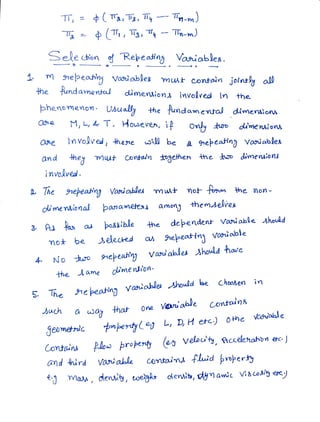 π₁ = φ (π₂, π₃, π₄ — πn-m)
π₂ = φ (π₁, π₃, π₄ — πn-m)
Selection of Repeating Variables.
1. m repeating variables must contain jointly all
the fundamental dimensions involved in the
phenomenon. Usually the fundamental dimensions
are M, L, & T. However, if only two dimensions
are involved, there will be 2 repeating variables
and they must contain together the two dimensions
involved.
2. The repeating variables must not form the non-
dimensional parameters among themselves
3. As far as possible the dependent variable should
not be selected as repeating variable
4. No two repeating variables should have
the same dimension.
5. The repeating variables should be chosen in
such a way that one variable contains
geometric property (eg L, D, H etc.) other variable
contains flow property (eg velocity, Acceleration etc.)
and third variable contains fluid property
eg mass, density, weight density, dynamic viscosity etc.)